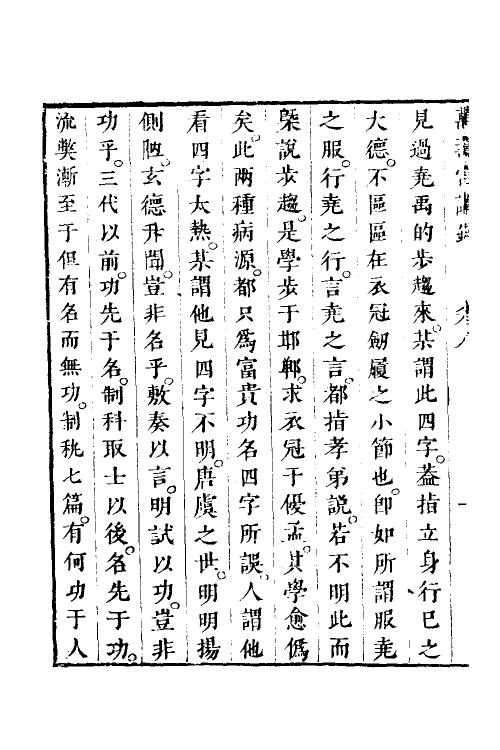 見過堯禹的步趨來某謂此四字葢指立身行已之
大德不區區在衣冠劒履之小節也卽如所謂服堯
之服行堯之行言堯之言都指孝弟說若不明此而
槩說步趨是學步于邯鄲求衣冠于優孟其學愈僞
矣此兩種病源都只爲富貴功名四字所誤人謂他
看四字太熱某謂他見四字不明唐虞之世明明揚
側陋玄德升聞豈非名乎敷奏以言明試以功豈非
功乎三代以前功先于名制科取士以後名先于功
流獘漸至于但有名而無功制秇七篇有何功于人